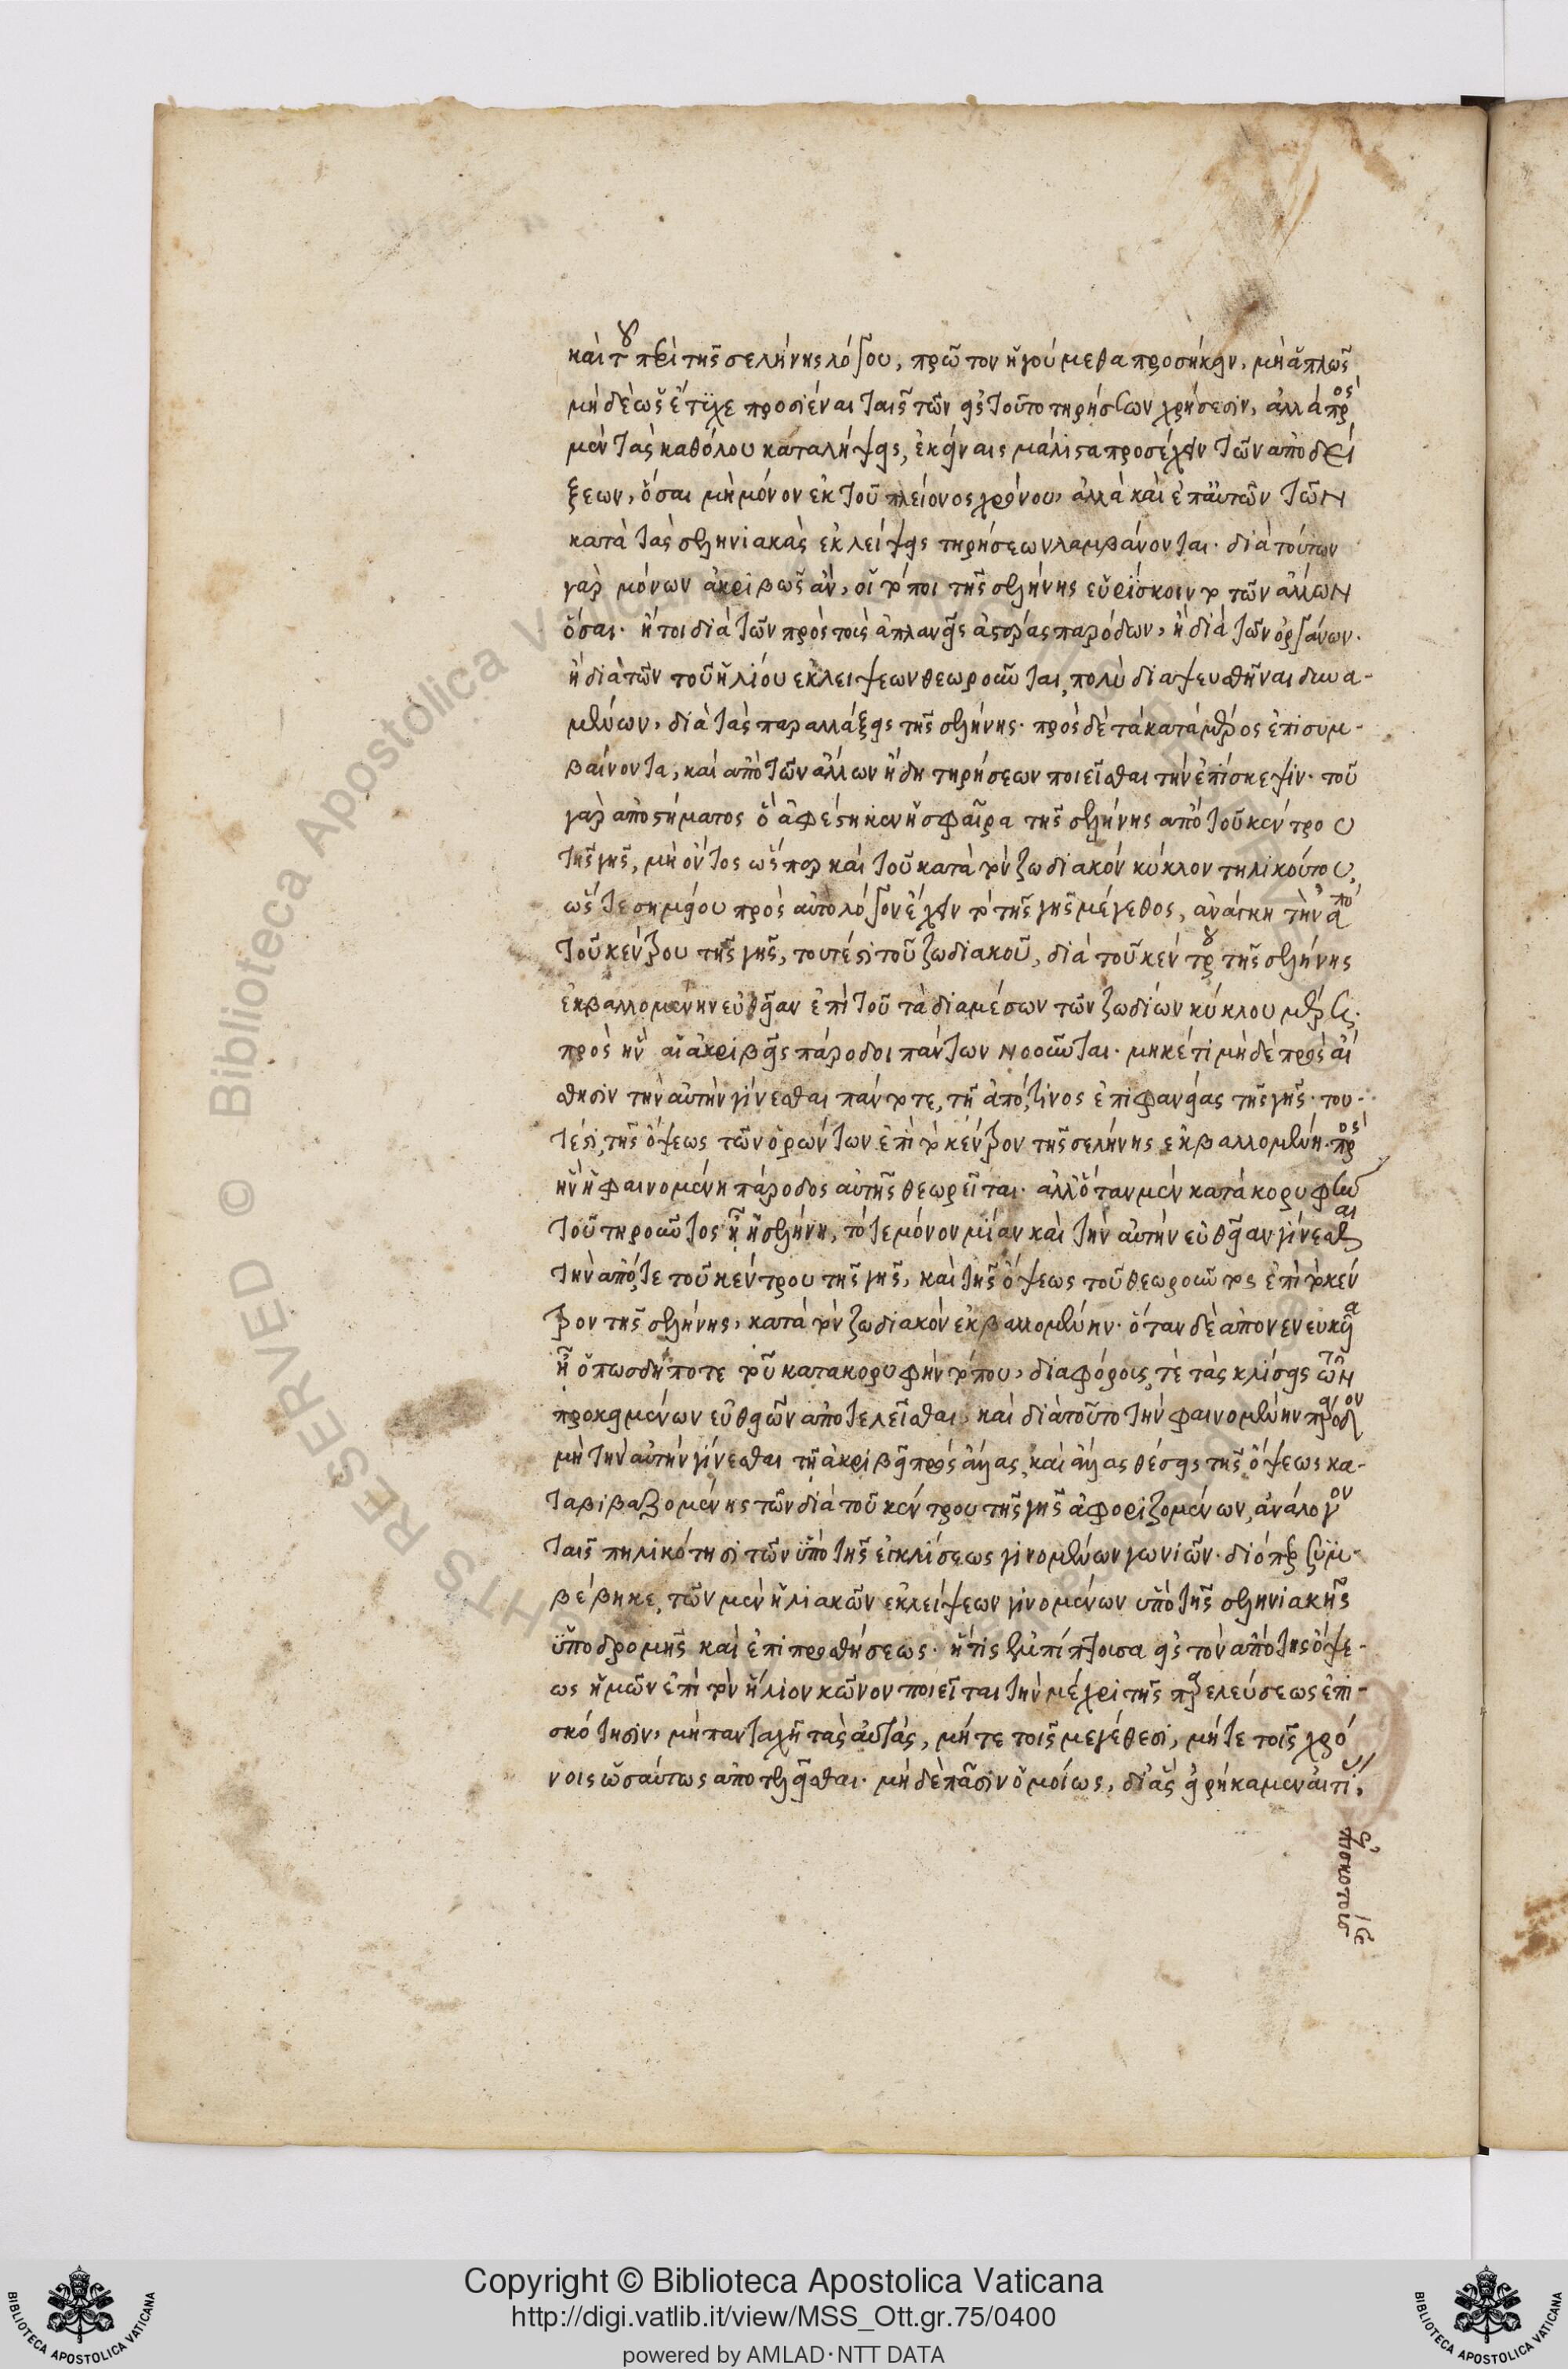 καὶ τοῦ περὶ τῆς σελήνης λόγου, πρῶτον ἡγούμεθα προσήκειν, μὴ ἁπλῶς
μὴ δὲ ὡς ἔτυχε προσιέναι ταῖς τῶν εἰς τοῦτο τηρήσεων χρήσεσιν, ἀλλὰ πρὸς
μὲν τὰς καθόλου καταλήψεις, ἐκείναις μάλιστα προσέχειν τῶν ἀποδεί
ξεων, ὅσαι μὴ μόνον ἐκ τοῦ πλείονος χρόνου, ἀλλὰ καὶ ἐπ' αὐτῶν τῶν
κατὰ τὰς σεληνιακὰς ἐκλείψεις τηρήσεων λαμβάνονται. διὰ τούτων
γὰρ μόνων ἀκριβῶς ἂν, οἱ τόποι τῆς σελήνης εὑρίσκοιντο τῶν ἄλλων
ὅσαι. ἤτοι διὰ τῶν πρὸς τοὺς ἀπλανεῖς ἀστέρας παρόδων, ἢ διὰ τῶν ὀργάνων.
ἢ διὰ τῶν τοῦ ἡλίου ἐκλείψεων θεωροῦνται, πολὺ διαψευσθῆναι δυνα-
μένων, διὰ τὰς παραλλάξεις τῆς σελήνης. πρὸς δὲ τὰ κατὰ μέρος ἐπισυμ-
βαίνοντα, καὶ ἀπὸ τῶν ἄλλων ἤδη τηρήσεων ποιεῖσθαι τὴν ἐπίσκεψιν. τοῦ
γὰρ ἀποστήματος ὃ ἀφέστηκεν ἡ σφαῖρα τῆς σελήνης ἀπὸ τοῦ κέντρου
τῆς γῆς, μὴ ὄντος ὥσπερ καὶ τοῦ κατὰ τὸν ζωδιακὸν κύκλον τηλικούτου,
ὥστε σημείου πρὸς αὐτὸ λόγον ἔχειν τὸ τῆς γῆς μέγεθος, ἀνάγκη τὴν ἀπὸ
τοῦ κέντρου τῆς γῆς, τουτέστι τοῦ ζωδιακοῦ, διὰ τοῦ κέντρου τῆς σελήνης
ἐκβαλλομένην εὐθεῖαν ἐπὶ τοῦ τὰ διαμέσων τῶν ζωδίων κύκλου μέρη.
πρὸς ἣν αἱ ἀκριβεῖς πάροδοι πάντων νοοῦνται. μηκέτι μὴ δὲ πρὸς αἴ
σθησιν τὴν αὐτὴν γίνεσθαι πάντοτε, τῇ ἀπό τινος ἐπιφανείας τῆς γῆς. του-
τέστι, τῆς ὄψεως τῶν ὁρώντων ἐπὶ τὸ κέντρον τῆς σελήνης ἐκβαλλομένῃ. πρὸς
ἣν ἡ φαινομένη πάροδος αὐτῆς θεωρεῖται. ἀλλ' ὅταν μὲν κατὰ κορυφὴν
τοῦ τηροῦντος ᾖ ἡ σελήνη, τότε μόνον μίαν καὶ τὴν αὐτὴν εὐθεῖαν γίνεσθαι
τὴν ἀπό τε τοῦ κέντρου τῆς γῆς, καὶ τῆς ὄψεως τοῦ θεωροῦντος ἐπὶ τὸ κέν
τρον τῆς σελήνης, κατὰ τὸν ζωδιακὸν ἐκβαλλομένην. ὅταν δὲ ἀπονενευκυῖα
ᾖ ὁπωσδήποτε τοῦ κατακορυφὴν τόπου, διαφόροις τὲ τὰς κλίσεις τῶν
προκειμένων εὐθειῶν ἀποτελεῖσθαι, καὶ διὰ τοῦτο τὴν φαινομένην πάροδον
μὴ τὴν αὐτὴν γίνεσθαι τῇ ἀκριβεῖ πρὸς ἄλλας, καὶ ἄλλας θέσεις τῆς ὄψεως κα-
ταβιβαζομένης τῶν διὰ τοῦ κέντρου τῆς γῆς ἀφοριζομένων, ἀνάλογον
ταῖς πηλικότησι τῶν ὑπὸ τῆς ἐγκλίσεως γινομένων γωνιῶν. διόπερ συμ-
βέβηκε, τῶν μὲν ἡλιακῶν ἐκλείψεων γινομένων ὑπὸ τῆς σεληνιακῆς
ὑποδρομῆς καὶ ἐπιπροσθήσεως. ἥτις ἐμπίπτουσα εἰς τὸν ἀπὸ τῆς ὄψε-
ως ἡμῶν ἐπὶ τὸν ἥλιον κῶνον ποιεῖται τὴν μέχρι τῆς παρελεύσεως ἐπι-
σκότησιν, μὴ πανταχῆ τὰς αὐτὰς, μήτε τοῖς μεγέθεσι, μήτε τοῖς χρό
νοις ὡσαύτως ἀποτελεῖσθαι. μὴ δὲ πᾶσιν ὁμοίως, δι' ἃς εἰρήκαμεν αἰτί
Copyright © Biblioteca Apostolica Vaticana
http://digi.vatlib.it/view/MSS_Ott.gr.75/0400
powered by AMLAD·NTT DATA